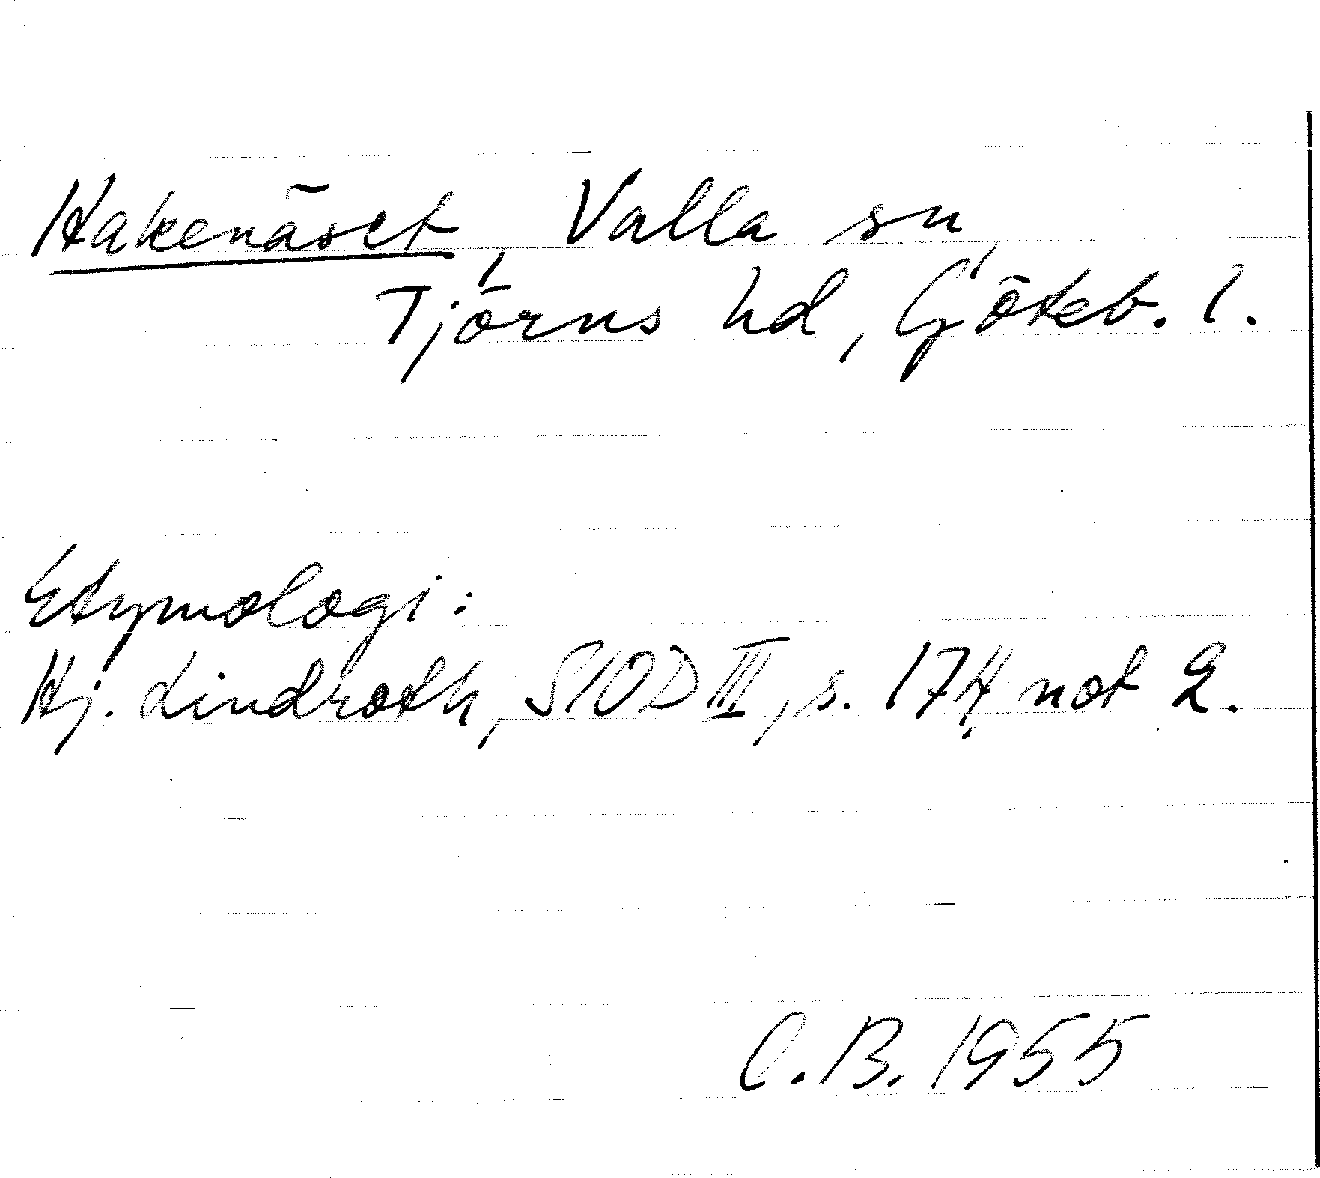 Hakenäset, Valla sn,
Tjörns hd, Göteb. l.
Etymologi:
Hj. Lindroth, SIOD III, s. 174, not 2.
C.B. 1955